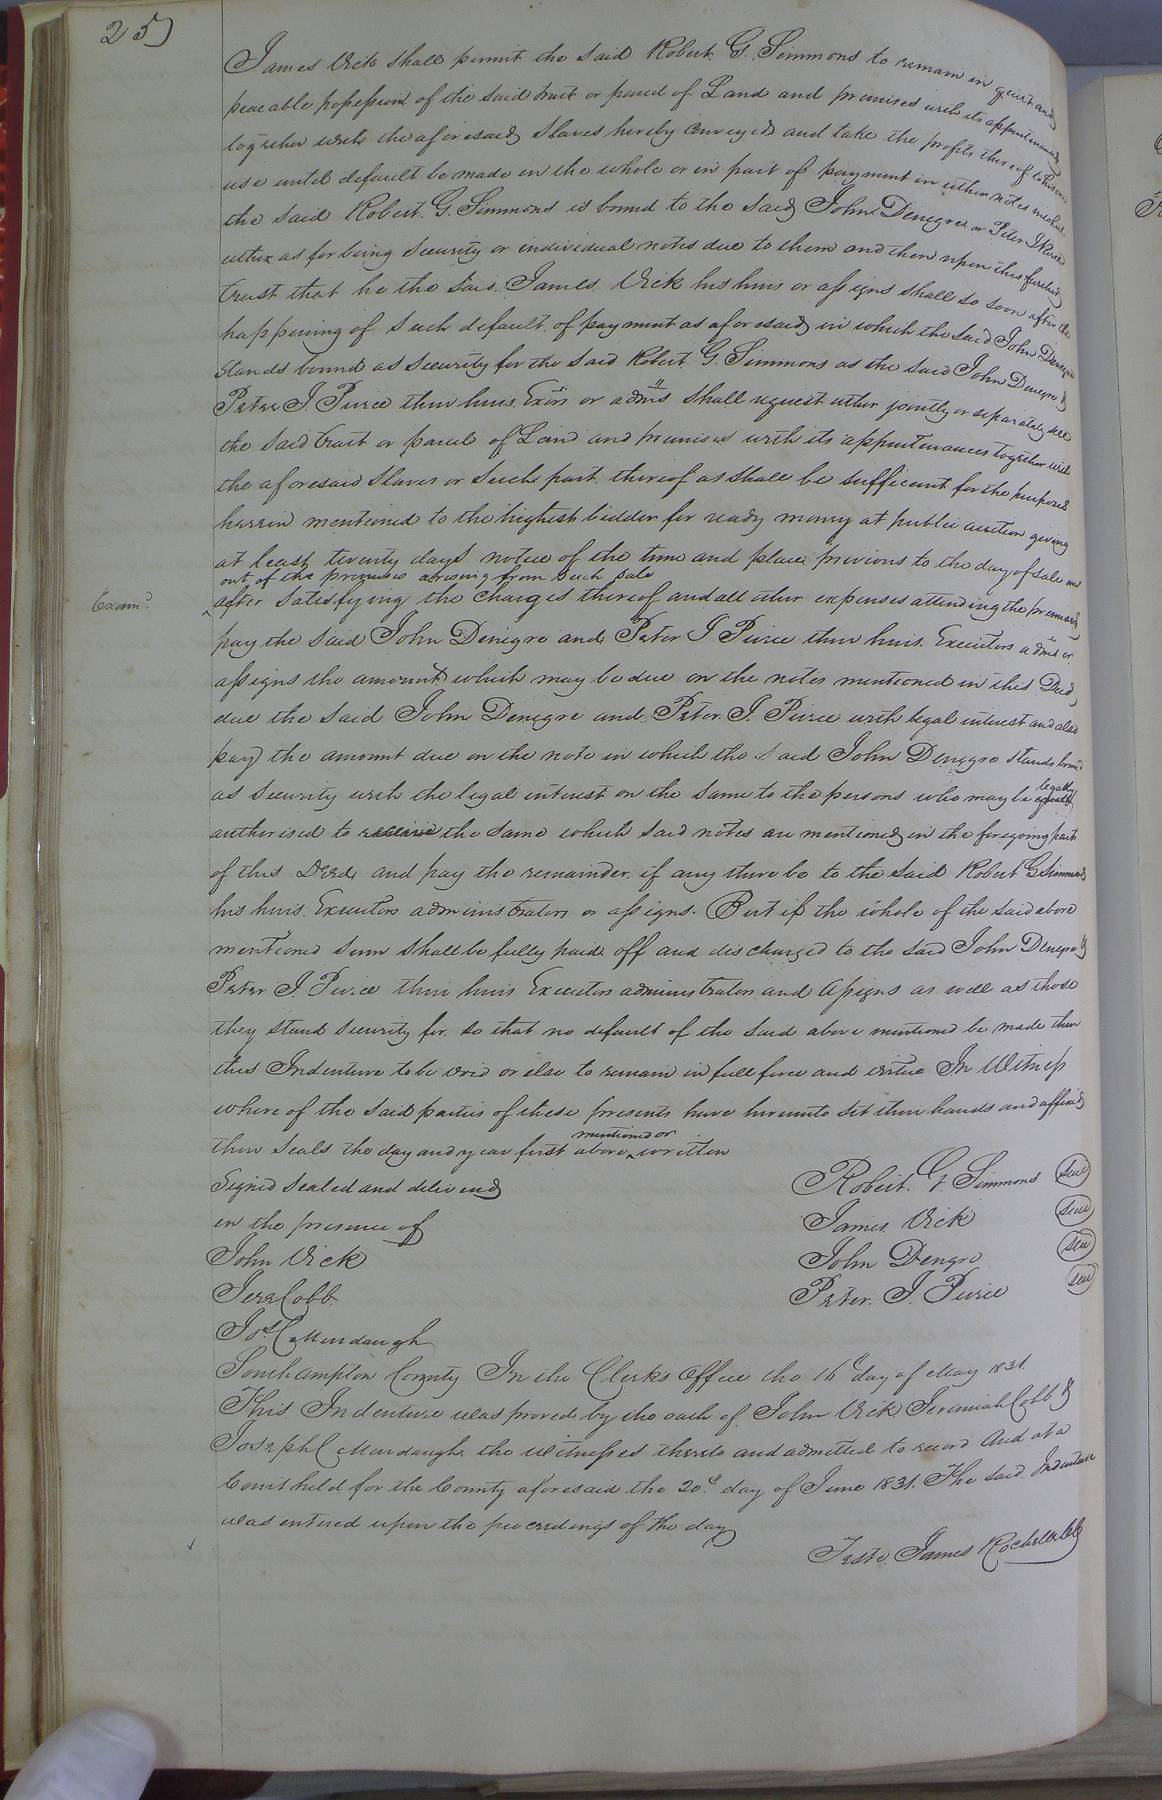 25)
James Vick shall permit the said Robert G. Simmons to remain in quiet and
peaceable possession of the said tract or parcel of Land and premises with its appurtenances
together with the aforesaid Slaves hereby conveyed and take the profits thereof to his own
use until default be made in the whole or in part of payment in either notes in which
the said Robert. G. Simmons is bound to the said John Denegre or Peter J Pierce
either as for being Security or individual notes due to them and then upon this further
trust that he the said. James. Vick his heirs or assigns shall so soon after the
happening of such default. of payment as aforesaid in which the said John Denegre
stands bound as security for the said Robert. G. Simmons as the said John Denegre &
Peter J. Pierce their heirs. Exors or adms shall request either jointly or separately sell
the said tract or parcel of Land and premises with its appurtenances together with
the aforesaid Slaves or such part. thereof as shall be sufficient for the purposes
herein mentioned to the highest bidder for ready money at public auction giving
at least twenty days notice of the time and place previous to the day of sale and
out of the premises arising from such sale
Examd.
after satisfying the charges thereof and all other expenses attending the premises
pay the said John Denegre and Peter J Pierce their heirs. Executors adms or
assigns the amount which may be due on the notes mentioned in this Deed
due the said John Denegre and, Peter. J. Pierce with legal interest and also
pay the amount due on the note in which the said John Denegre stands bound
legally
as security with the legal interest on the same to the persons who may be
authorised to receive the same which said notes are mentioned in the foregoing part
of this Deed and pay the remainder. if any there be to the said Robert G Simmons
his heirs. Executors administrators or assigns. But if the whole of the said above
mentioned sum shall be fully paid off and discharged to the said John Denegre &
Peter J. Pierce their heirs Executors administrators and Assigns as well as those
they stand security for. so that no default of the said above mentioned be made then
this Indenture to be void or else to remain in full force and virtue In Witness
whereof the said parties of these presents have hereunto set their hands and affixed
mentioned or
their seals the day and year first above written
Signed sealed and delivered Robert. G. Simmons Seal
in the presence of James Vick Seal
John Vick John Dengre Seal
Jere Cobb Peter. J. Pierce Seal
Jos. C Murdaugh
Southampton County In the Clerks Office the 16th day of May 1831.
This. Indenture was proved by the oath of. John Vick Jeremiah Cobb &
Joseph C Murdaugh the witnesses thereto and admitted to record And at a
Court held for the County aforesaid the 20th day of June 1831. The said Indenture
was entered upon the proceedings of the day
Teste. James Rochelle Clk